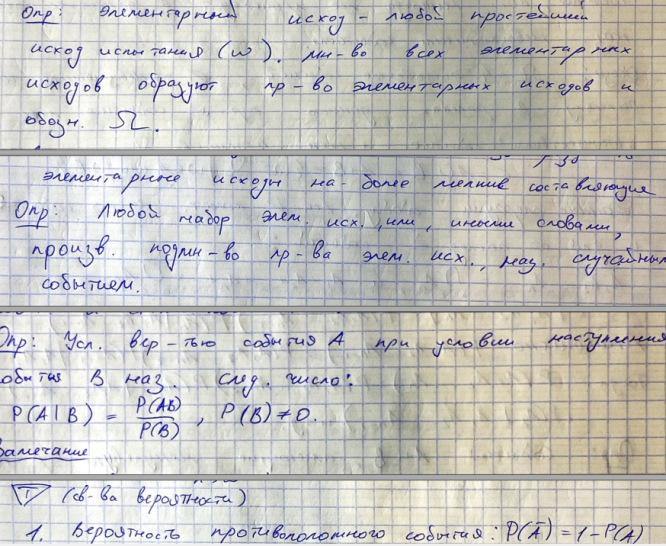 Опр: элементарный исход - любой простейший
исход испытания (ω). мн-во всех элементарных
исходов образуют пр-во элементарных исходов и
обозн. Ω.
элементарные исходы на более мелкие составляющие
Опр: Любой набор элем. исх., или, иными словами,
произв. подмн-во пр-ва элем. исх., наз. случайным
событием.
Опр: Усл. вер-тью события A при условии наступления
события B наз. след. число:
P(A|B) = P(AB)/P(B), P(B)≠0.
Замечание
T (св-ва вероятности)
1. Вероятность противоположного события: P(Ā) = 1-P(A)